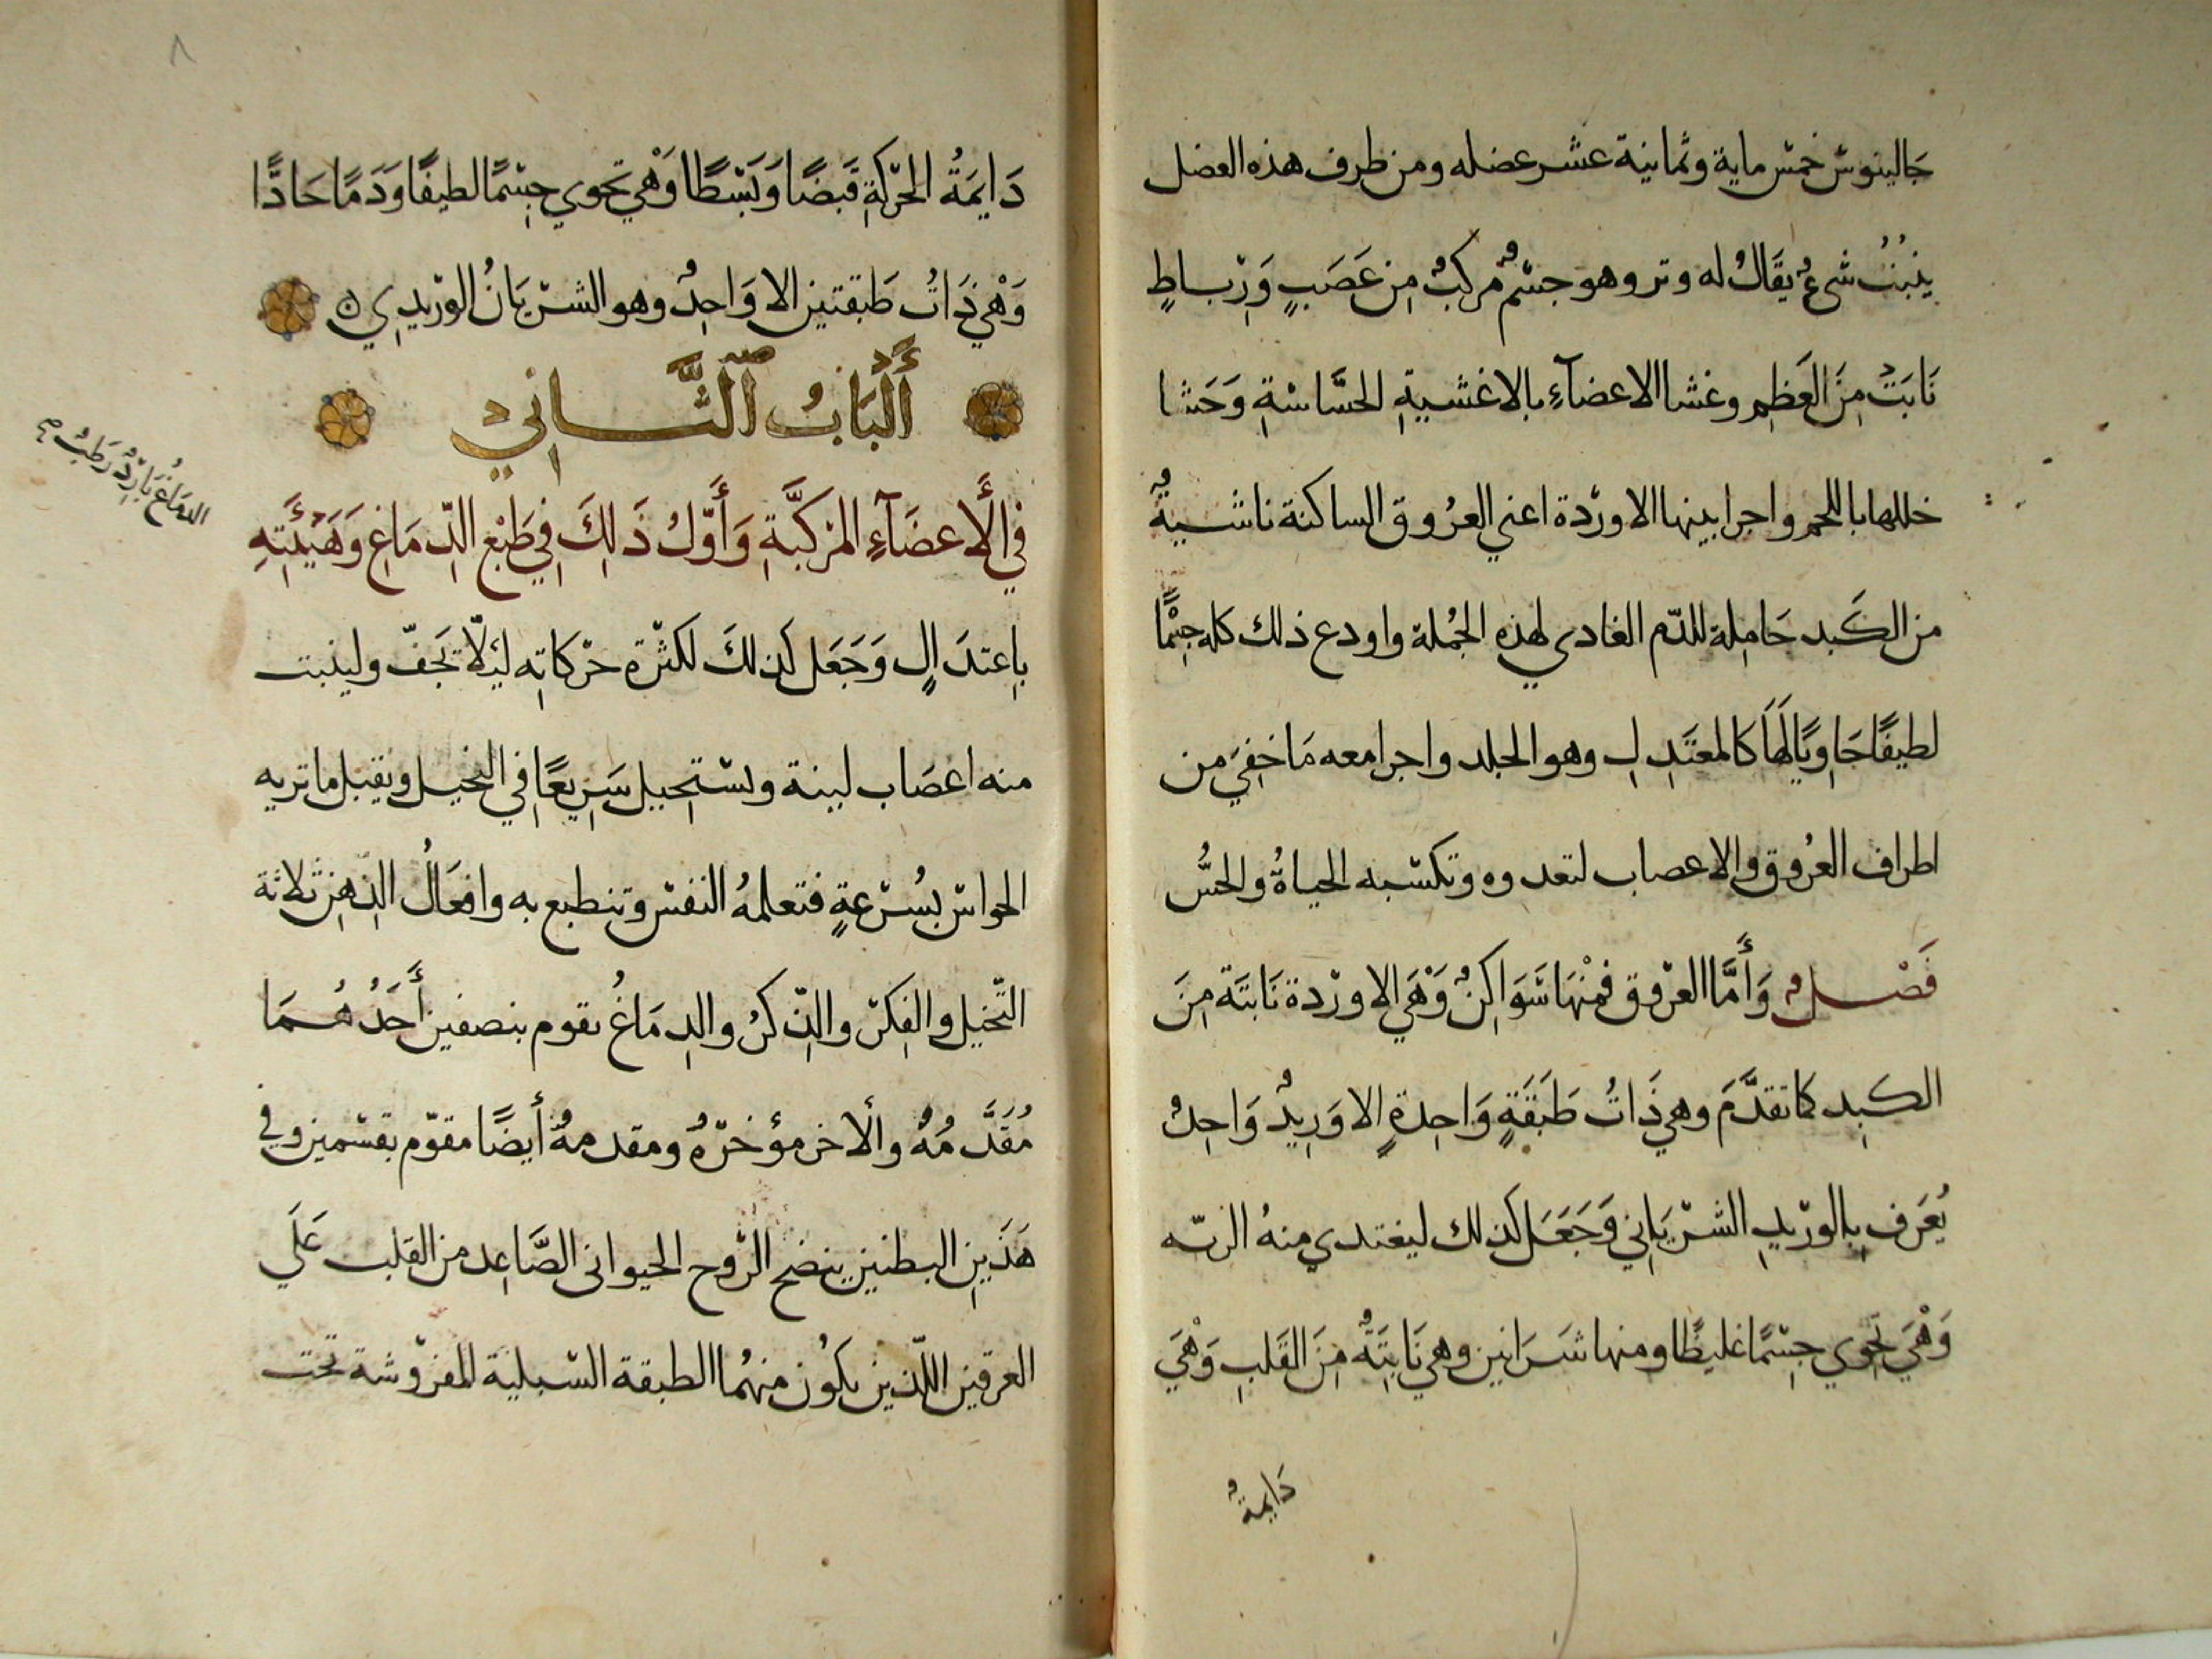 جَالينوسْ خمسْ ماية وثمانية عشر عضله ومن طرف هذه العضل
ينبُتُ شيءٌ يقَالُ له وتر وهو جسْمٌ مركبٌ مِن عَصَبٍ وَرِبَاطٍ
نَابَتْ مِنَ العَظِمِ وغشا الاعضآءِ بالاغشيةِ الحسَّاسَةِ وَحَشا
خللها باللحم واجرا بينها الاورْدة اعني العرُوق الساكنة ناشيةٌ
من الكَبد حَامِلة للدّم الغادي لهذهِ الجُملة واودع ذلك كله جِسْمًا
لطيفًا حَاوِيًا لهَا كالمعتَدِلِ وهو الجلد واجرا معه مَا خفِيَ من
اطراف العرُوق والاعصاب لتعدوه وتكسْبه الحياةُ والحسُّ
فَصْلٌ وَأَمَّا العرْوق فمْنهَا سَوَاكِنٌ وَهْيَ الاورْدة نَابتَة مِنَ
الكبِد كما تقدَّمَ وهي ذَاتُ طَبَقَةٍ وَاحِدةٍ الا وَرِيدٌ وَاحِدٌ
يُعرَف بِالورْيدِ الشرْيَانِي وَجَعَل كذلك ليغتدي منهُ الريّه
وَهْيَ تحْوي جسْمًا غليظًا ومنها شَرَانين وهي نَابِتَةٌ مِنَ القَلبِ وَهْيَ
دَايمةٌ
٨
دَايمَةُ الحَرْكَةِ قَبضًا وَبَسْطًا وَهْيَ تحَوي جِسْمًا لطيفًا وَدَمًا حَادًّا
وَهْي ذَاتُ طَبقتين الا وَاحِدٌ وهو الشرْيَانُ الورْيدِي ۞
أَلْبَابُ الثَّانِي
فِي الْأَعضَآءِ المرَكَّبَةِ وَأَوَّلُ ذَلِكَ فِي طَبْعِ الدِّمَاغِ وَهَيْئَتِهِ
الدِمَاغُ بَارِدٌ رَطْبٌ صح
بِاعتدَالٍ وَجَعَل كذلكَ لكثرْة حرْكاتِه ليَلّا تَجفّ ولينبت
منه اعصَاب لينة ويسْتحِيل سَرِيعًا فِي التخيل ويقبل ما تريه
الحواسْ بسُرْعةٍ فتعلمهُ النفسْ وتنطبع به وافعَالُ الذِهن ثلاثة
التّخيل والفِكرْ والذِّكرُ والدِمَاغُ يقوم بنصفين أَحَدُهُمَا
مُقدَّمُهُ والاخر مؤخرّهُ ومقدمهُ أيضًا مقوّم بقسْمين وفي
هَذَينِ البطنين ينضج الرّوح الحيواني الصَّاعِد من القلب عَلَي
العرقين اللّذين يكوُن منهُما الطبقة السّبلية المفرْوشة تحت